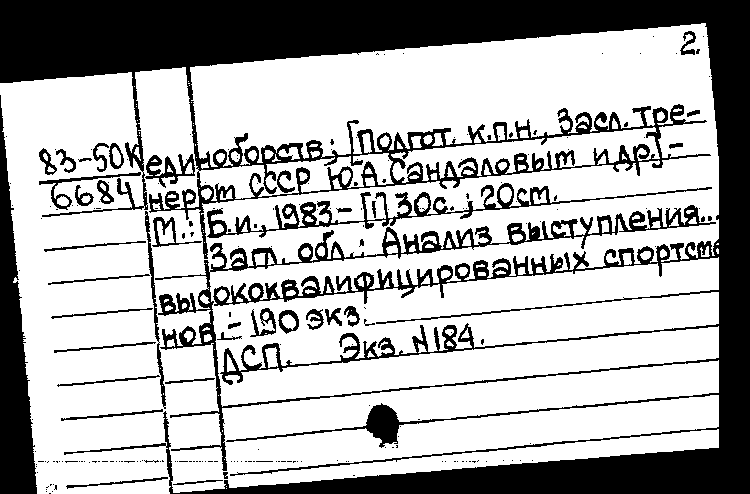 2.
83-50К единоборств; [Подгот. к.п.н., Засл. тре-
6684 нером СССР Ю.А.Сандаловым и др.].-
М.: Б.и., 1983.- [1],30с.; 20см.
Загл. обл.: Анализ выступления...
высококвалифицированных спортсме
нов.- 190 экз.
ДСП. Экз. N184.